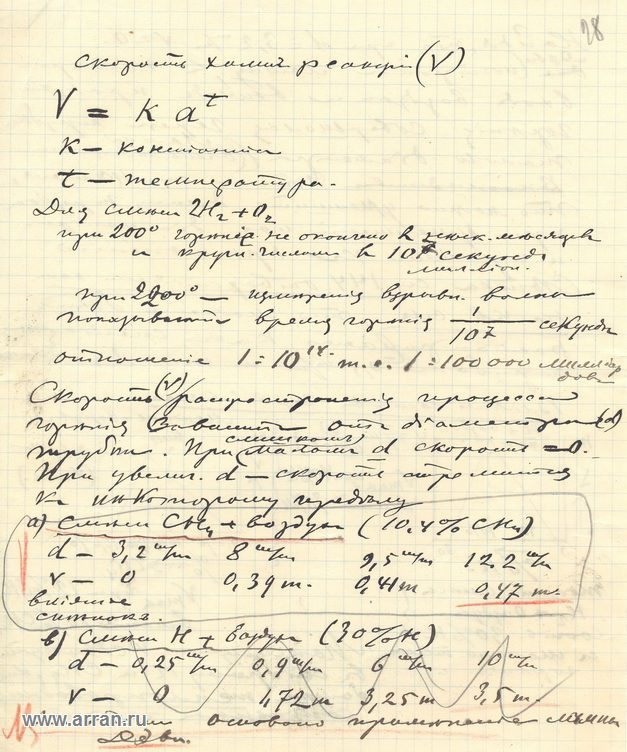 28
Скорость химич реакцiи (V)
V = K a^t
K — константа
t — температура.
Для смѣси 2H₂ + O₂
при 200° горѣнiе не окончено в нѣск. мѣсяцев
и кругл. числом в 10⁷ секунд
миллион.
при 2200° — измѣренiя взрывн. волны
показывают время горѣнiя 1/10⁷ секунды
отношенiе 1 : 10¹⁴ т.е. 1 : 100 000 миллiар
дов
Скорость (V) распространенiя процесса
горѣнiя зависит от дiаметра (d)
трубки. При слишком малом d скорость = 0.
При увелич. d — скорость стремится
к нѣкоторому предѣлу
а) Смѣси CH₄ + воздух (10,4% CH₄)
d — 3,2 m/m 8 m/m 9,5 m/m 12.2 m/m
v — 0 0,39 m. 0,41 m 0,47 m.
влiянiе
в) Смѣси H + воздух (30% H)
d — 0,25 m/m 0,9 m/m 6 m/m 10 m/m
v — 0 1,72 m 3,25 m 3,5 m.
основано примѣненiе лампы
Дэви.
www.arran.ru